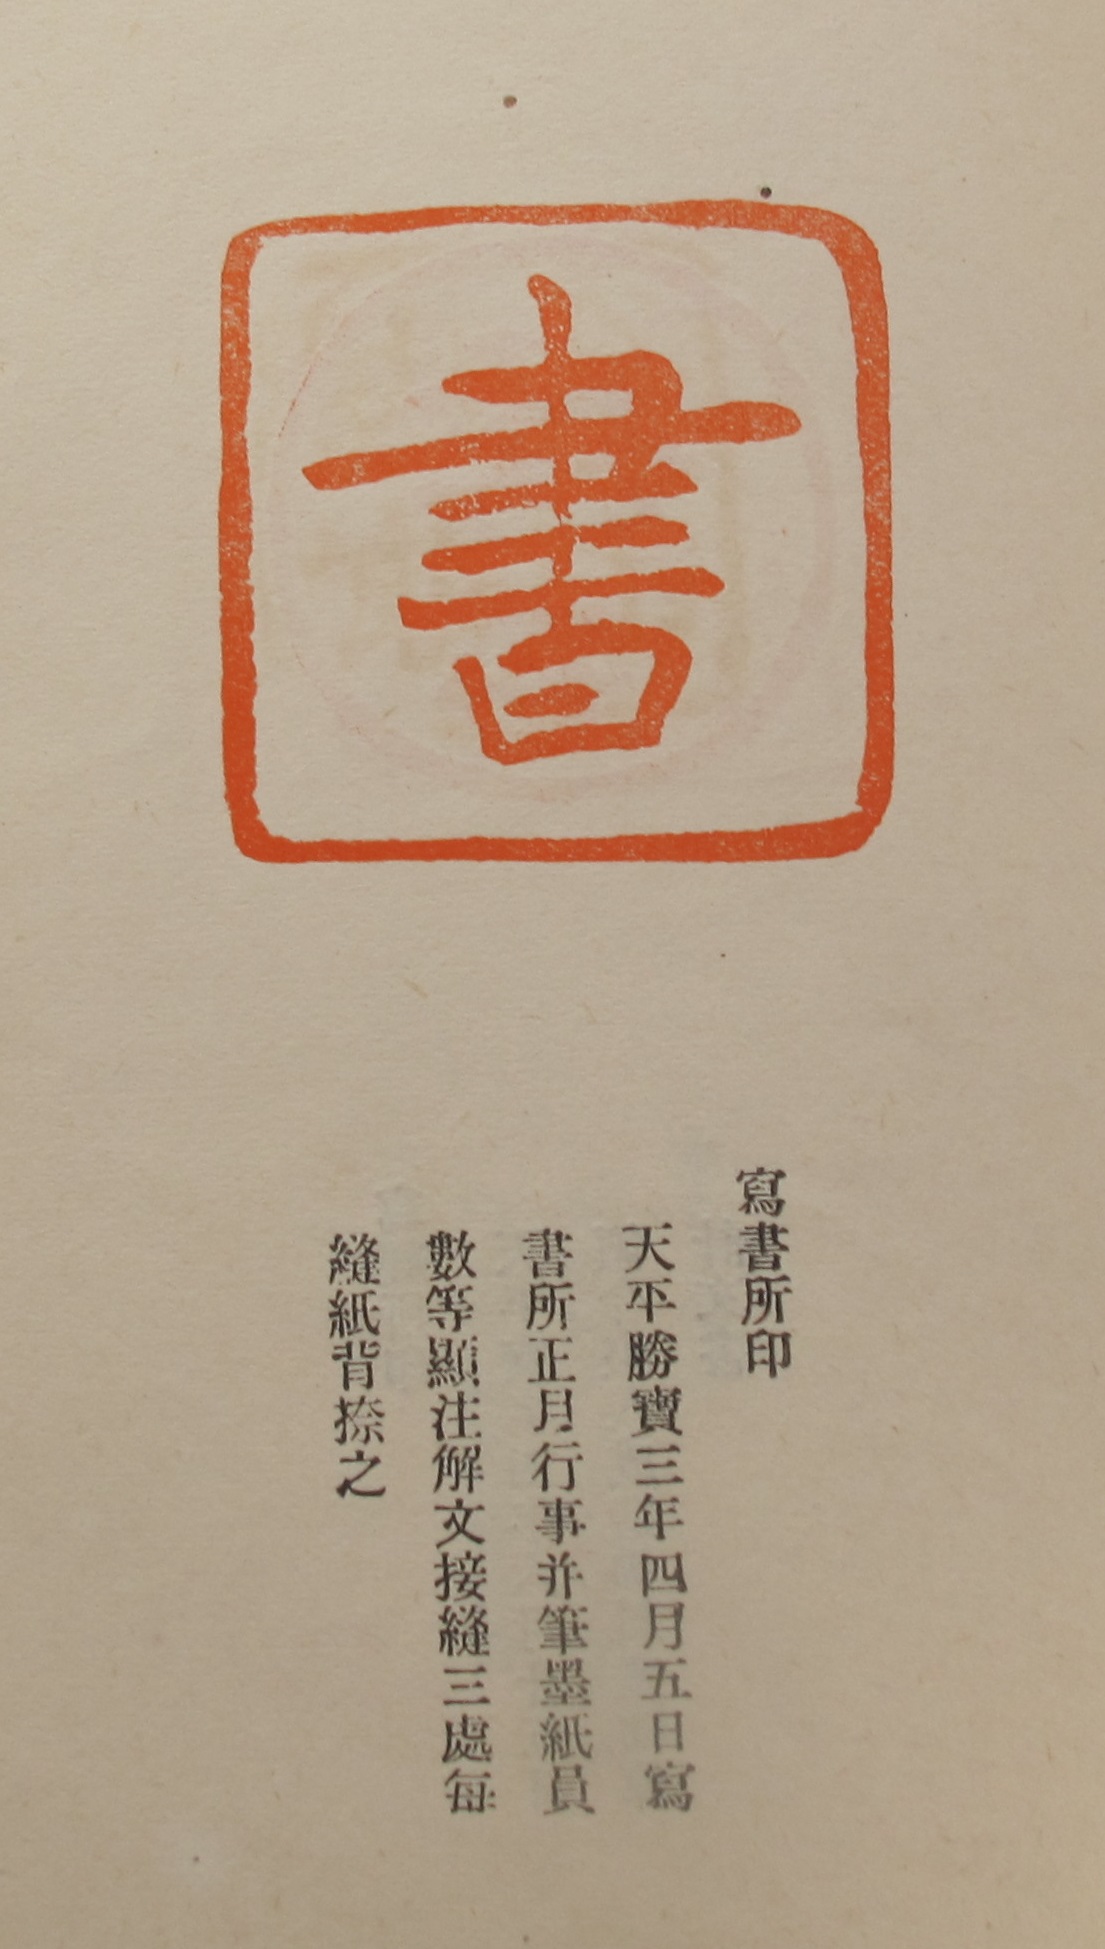 書
寫書所印
天平勝寶三年四月五日寫
書所正月行事并筆墨紙員
數等顯注解文接縫三處每
縫紙背捺之